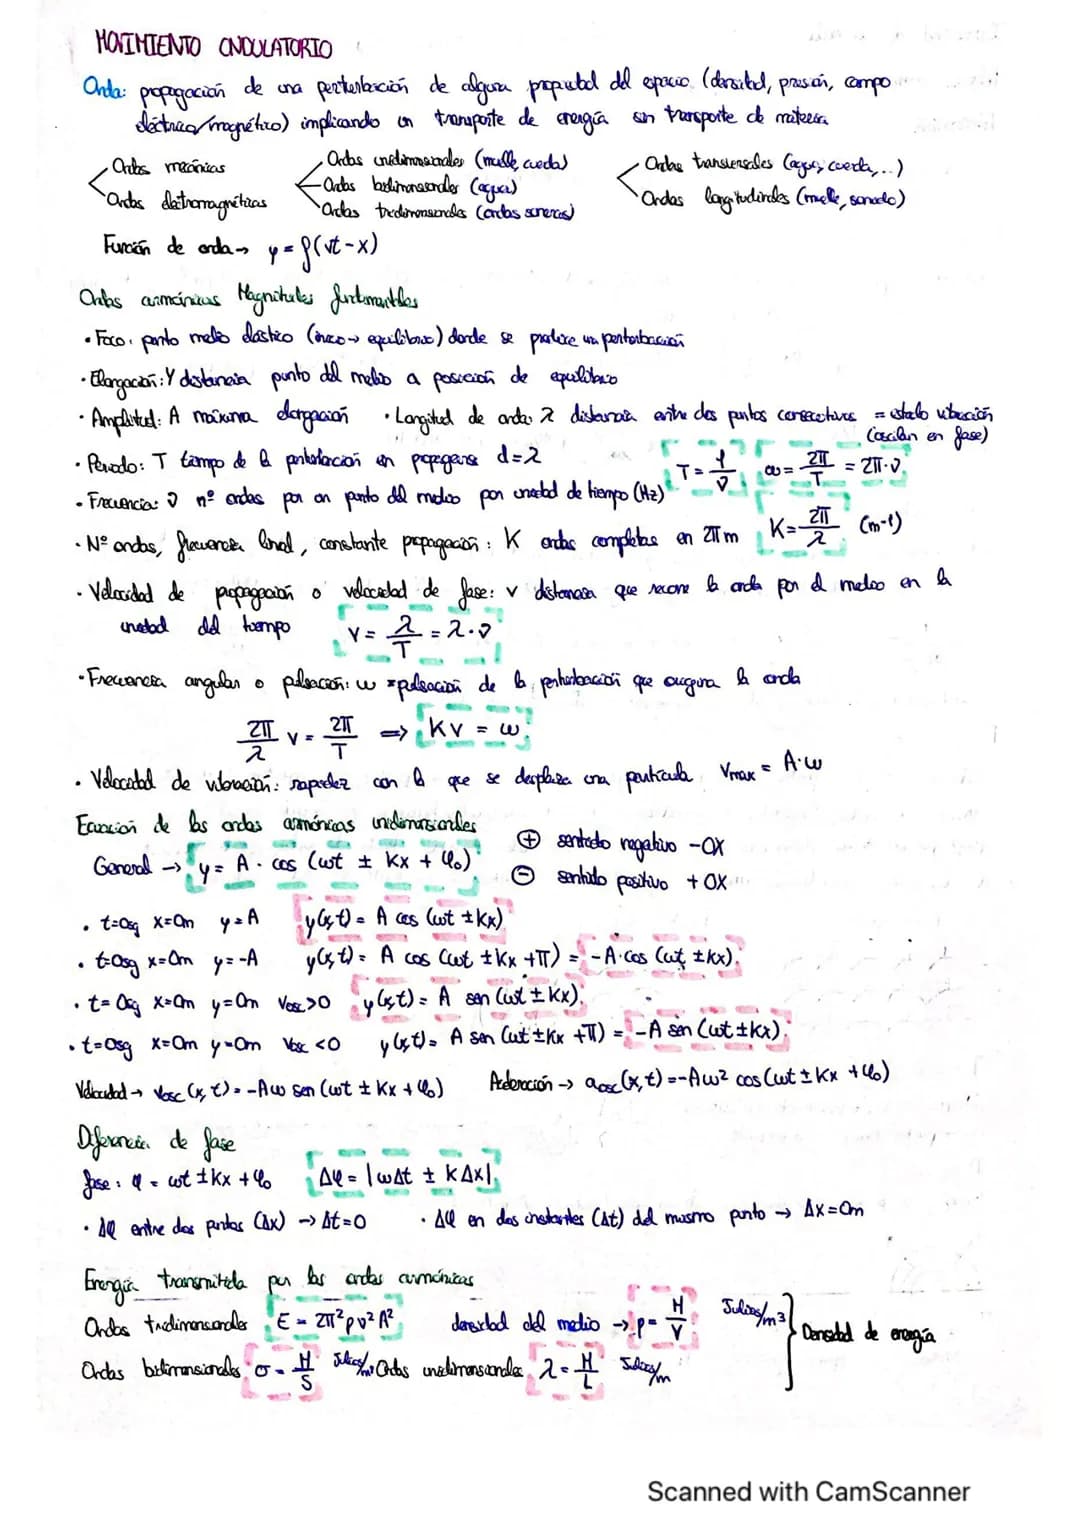 MOVIMIENTO ONDULATORIO
Onda: propagación de una perturbación de alguna propiedad del espacio (densidad, presión, campo
eléctrico/magnético) implicando un transporte de energía sin transporte de materia
Ondas mecánicas
Ondas electromagnéticas
Ondas unidimensionales (muelle, cuerda)
Ondas bidimensionales (agua)
Ondas tridimensionales (ondas sonoras)
Ondas transversales (agua, cuerda,...)
Ondas longitudinales (muelle, sonido)
Función de onda → y = f(vt - x)
Ondas armónicas Magnitudes fundamentales
• Foco: punto medio elástico (inicio → equilibrio) donde se produce una perturbación
• Elongación: Y distancia punto del medio a posición de equilibrio
• Amplitud: A máxima elongación • Longitud de onda: λ distancia entre dos puntos consecutivos = estado vibración
(oscilan en fase)
• Periodo: T tiempo de la perturbación en propagarse d=λ T = 1/ν ω = 2π/T = 2π·ν
• Frecuencia: ν nº ondas por un punto del medio por unidad de tiempo (Hz)
• Nº ondas, frecuencia lineal, constante propagación: K ondas completas en 2π m K = 2π/λ (m-1)
• Velocidad de propagación o velocidad de fase: v distancia que recorre la onda por el medio en la
unidad del tiempo v = λ/T = λ·ν
• Frecuencia angular o pulsación: ω pulsación de la perturbación que origina la onda
2π/λ v = 2π/T => Kv = ω
• Velocidad de vibración: rapidez con la que se desplaza una partícula Vmax = A·ω
Ecuación de las ondas armónicas unidimensionales
General → y = A · cos (ωt ± Kx + φ₀)
⊕ sentido negativo -OX
⊖ sentido positivo +OX
• t=0sg x=0m y=A y(x,t) = A cos (ωt ± Kx)
• t=0sg x=0m y=-A y(x,t) = A cos (ωt ± Kx + π) = -A·cos (ωt ± Kx)
• t=0sg x=0m y=0m Vosc >0 y(x,t) = A sen (ωt ± Kx)
• t=0sg x=0m y=0m Vosc <0 y(x,t) = A sen (ωt ± Kx + π) = -A sen (ωt ± Kx)
Velocidad → Vosc (x,t) = -Aω sen (ωt ± Kx + φ₀) Aceleración → aosc (x,t) = -Aω² cos (ωt ± Kx + φ₀)
Diferencia de fase
fase: φ = ωt ± Kx + φ₀ Δφ = |ωΔt ± KΔx|
• Δφ entre dos puntos (Δx) → Δt=0 • Δφ en dos instantes (Δt) del mismo punto → Δx=0m
Energía transmitida por las ondas armónicas
Ondas tridimensionales E = 2π²ρν²A² densidad del medio → ρ = M/V Julios/m³
Densidad de energía
Ondas bidimensionales σ = M/S Julios/m² Ondas unidimensionales λ = M/L Julios/m
Scanned with CamScanner